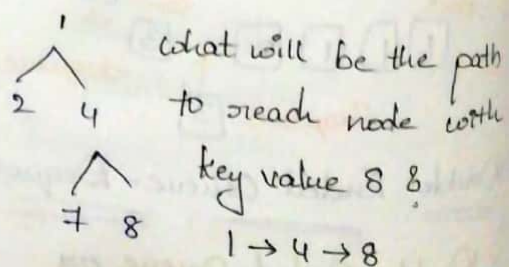 1
2 4
7 8
what will be the path
to reach node with
key value 8 ?
1 → 4 → 8